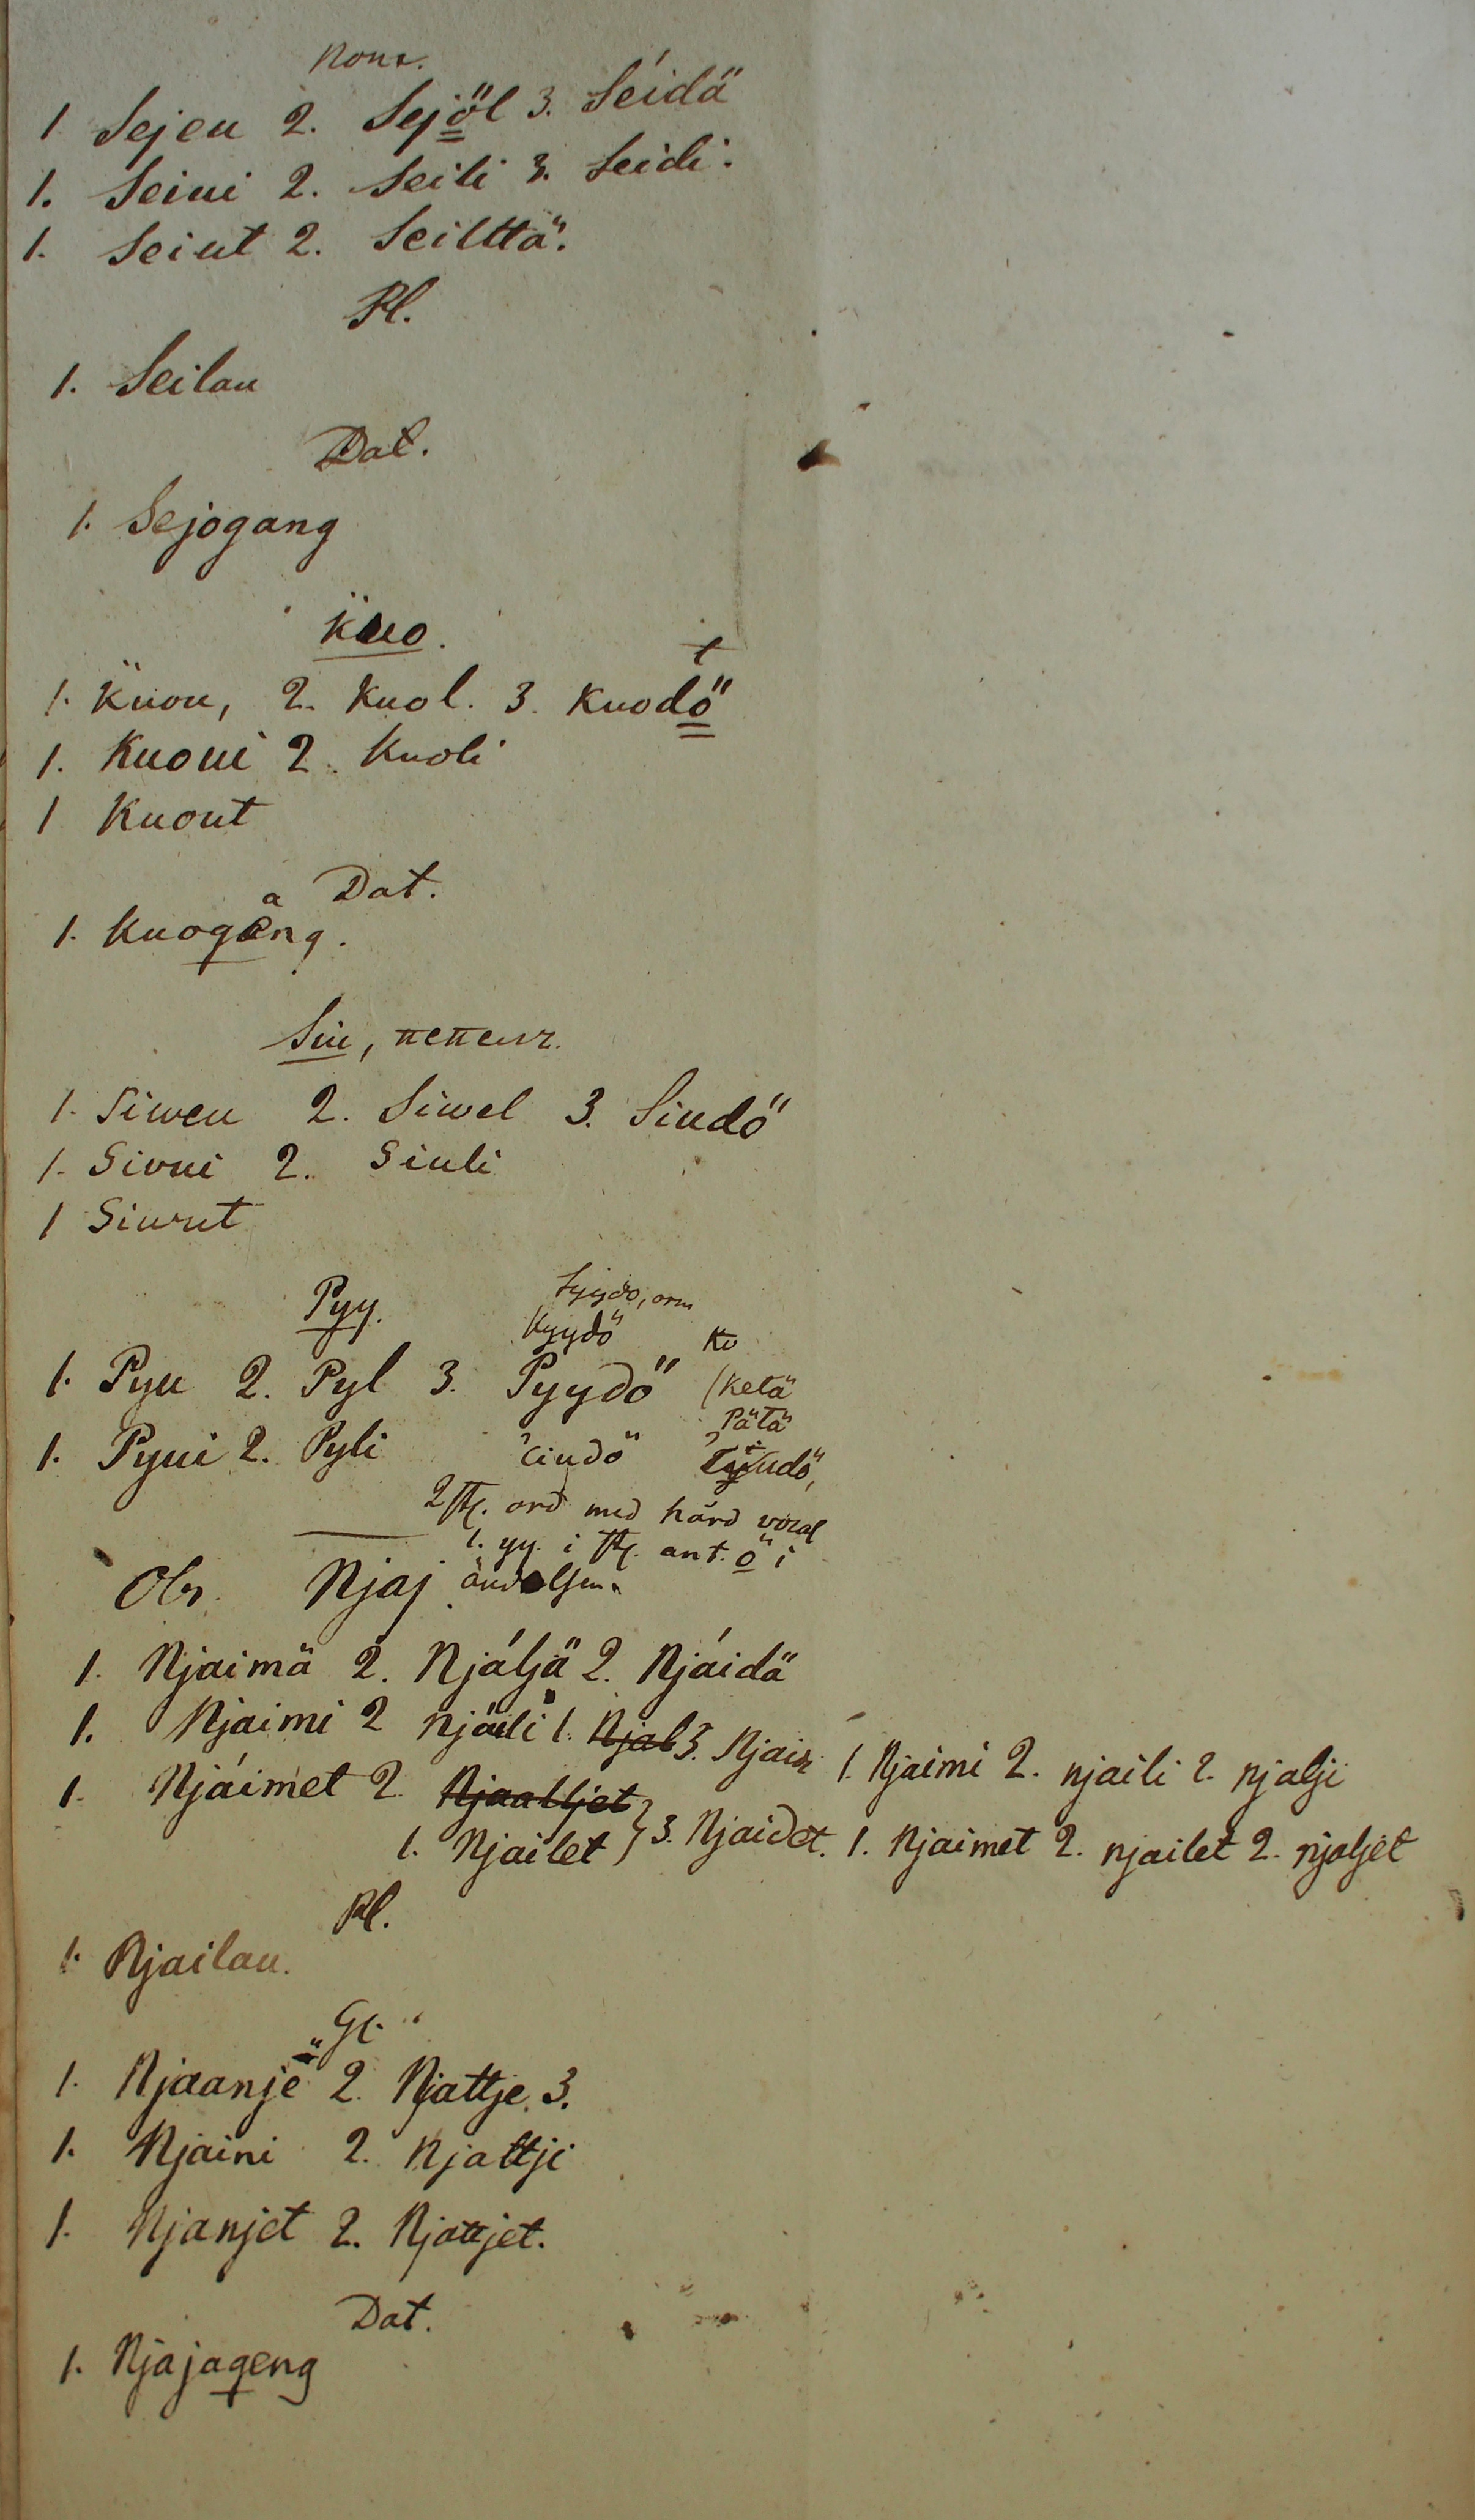 Nom.
1 Sejeu 2. Sejöl 3. Séidä
1. Seiui 2. Seili 3. Seidi.
1. Seiut 2. Seilttä.
Pl.
1. Seilau
Dat.
1. Sejogang
Kuo.
1. Kuou, 2. Kuol. 3. Kuodö
1. Kuoui 2. Kuoli
1 Kuout
Dat.
a
1. Kuogeng.
Siu,
1. Siweu 2. Siwel 3. Siudö
1. Sivui 2. Siuli
1 Siwut
Pyy.
Kyydö
1. Pyu 2. Pyl 3. Pyydö (Ketä
Pätä
1. Pyui 2. Pyli ciudö
ord med hård vocal
1. yy. i ant. ö i
Obs. Njaj ändelsen.
1. Njaimä 2. Njáljä 2. Njáidä
1. Njaimi 2 njäili 1. Njal 3. Njaid 1. Njaimi 2. njaili 2. njalji
1. Njáimet 2. Njaalljet
1. Njailet } 3. Njaidet. 1. Njaimet 2. njailet 2. njaljet
Pl.
1. Njailau.
Gt.
1. Njaanjë 2. Njattje 3.
1. Njaini 2. Njattji
1. Njanjet 2. Njattjet.
Dat.
1. Njajageng